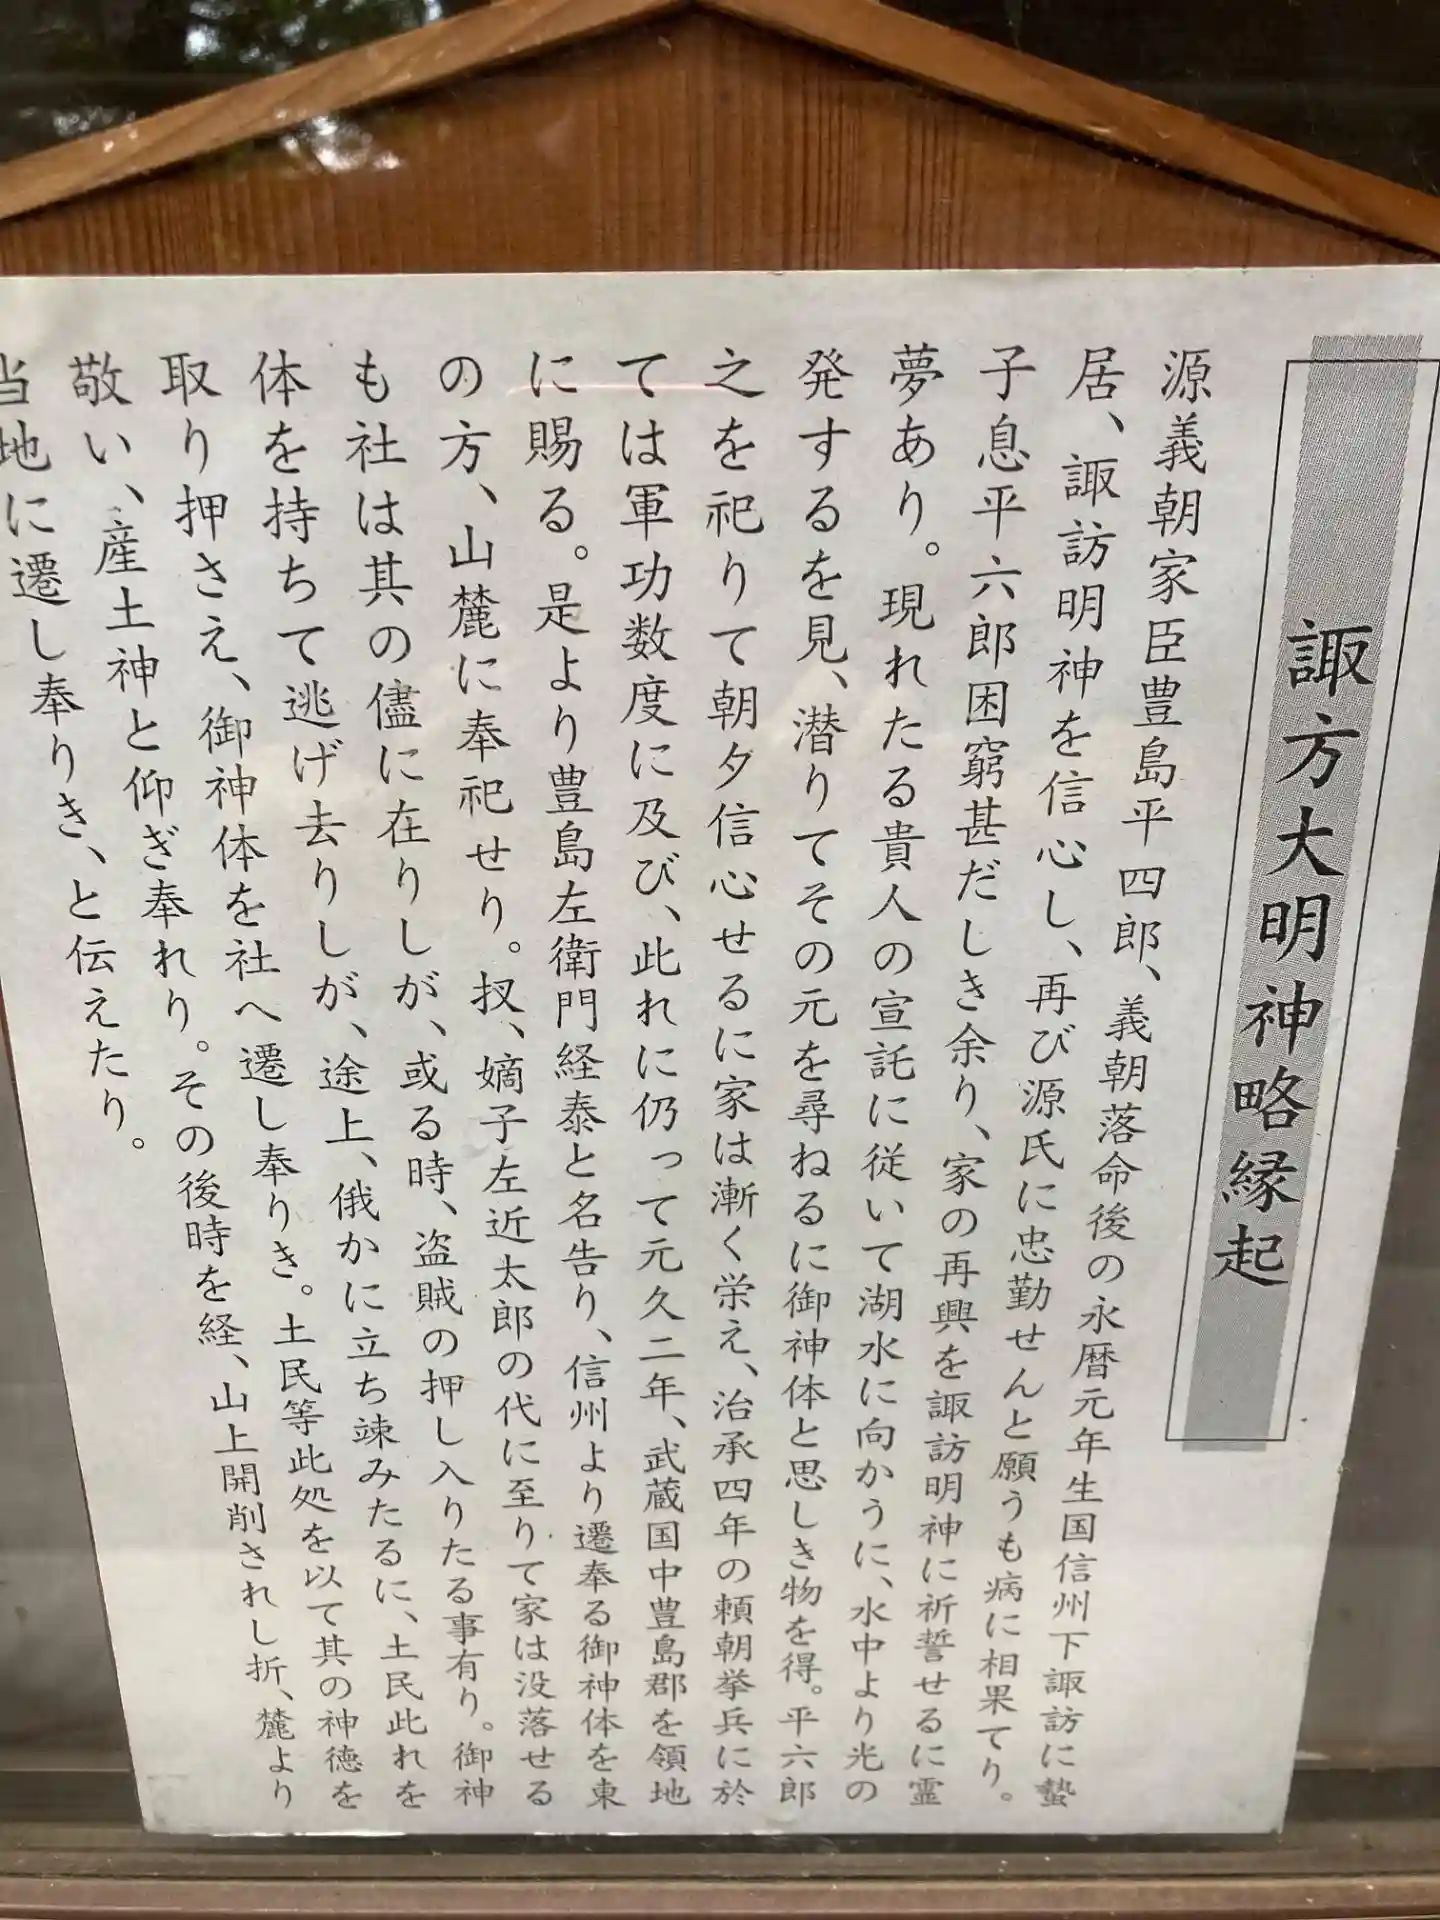 諏方大明神略縁起
源義朝家臣豊島平四郎、義朝落命後の永暦元年生国信州下諏訪に蟄
居、諏訪明神を信心し、再び源氏に忠勤せんと願うも病に相果てり。
子息平六郎困窮甚だしき余り、家の再興を諏訪明神に祈誓せるに霊
夢あり。現れたる貴人の宣託に従いて湖水に向かうに、水中より光の
発するを見、潜りてその元を尋ねるに御神体と思しき物を得。平六郎
之を祀りて朝夕信心せるに家は漸く栄え、治承四年の頼朝挙兵に於
ては軍功数度に及び、此れに仍って元久二年、武蔵国中豊島郡を領地
に賜る。是より豊島左衛門経泰と名告り、信州より遷奉る御神体を東
の方、山麓に奉祀せり。扨、嫡子左近太郎の代に至りて家は没落せる
も社は其の儘に在りしが、或る時、盗賊の押し入りたる事有り。御神
体を持ちて逃げ去りしが、途上、俄かに立ち竦みたるに、土民此れを
取り押さえ、御神体を社へ遷し奉りき。土民等此処を以て其の神徳を
敬い、産土神と仰ぎ奉れり。その後時を経、山上開削されし折、麓より
当地に遷し奉りき、と伝えたり。